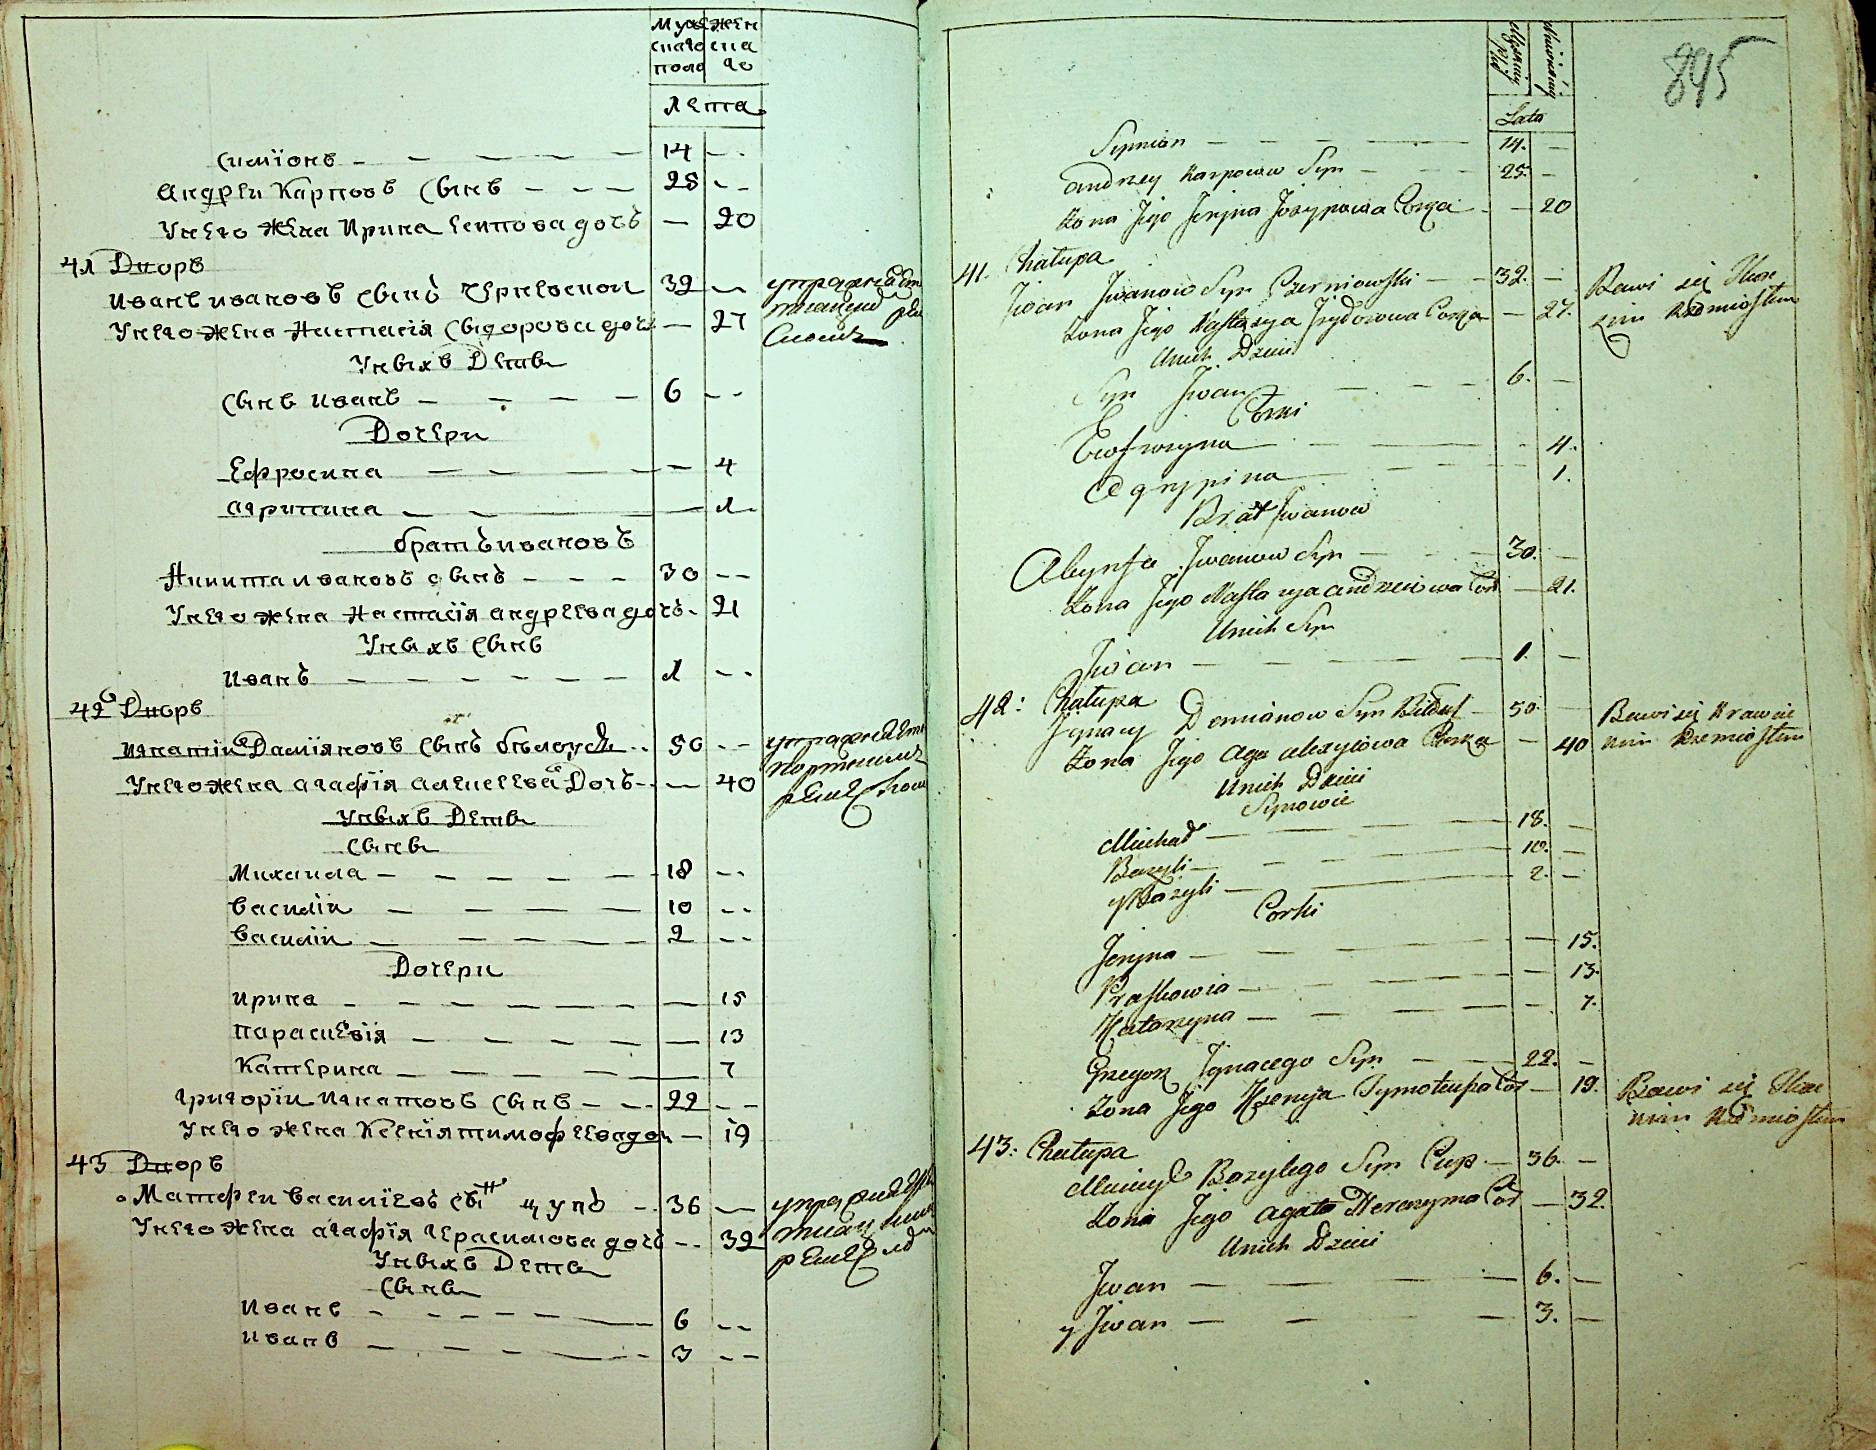 Муж Жен
скаго ска
пола го
Лета
Симїонъ — — — — — 14 — -
Андреи Карповъ Сынъ — — — 25 - -
У него жена Ирина Есипова дочъ — 20
41 Дворъ
Иванъ Ивановъ Сынъ Черневскои 32 —
У него жена Настасїя Сидорова дочъ — 27
У них Дети
Сынъ Иванъ — — — — 6 - -
Дочери
Ефросина — — — — — 4
Агрипина — — — 1
братъ Ивановъ
Никита Ивановъ сынъ - - - 30 - -
У него жена Настасїя Андреева дочъ - 21
У нихъ Сынъ
Иванъ — — — — — — 1 - -
42 Дворъ
Игнатїи Дамїановъ Сынъ белоусъ 50 - -
У него жена Агафїя Алексеева Дочъ - — 40
У нихъ Дети
Сыны
Михаила — — — — — 18 - -
Василїи — — — — 10 - -
Василїи — — — — 2 - -
Дочери
Ирина — — — — — 15
Параскевїя — — — — — 13
Катерина — — — — — 7
Григорїи Игнатовъ Сынъ - - 22 - -
У него жена Ксенїя Тимофеева доч — 19
43 Дворъ
Матфеи Василїевъ Сынъ цупъ - 36 —
У него жена Агафїя Герасимова дочъ - - 32
У нихъ Дети
Сыны
Иванъ — — — — 6 - -
Иванъ — — — — 3 - -
895
Lata
Symion — — — — 14. —
Andrzey Karpowow Syn — — 25. —
Zona Jego Jeryna Jozypowa Corka — 20
41. Chałupa
Jwan Jwanow Syn Czerniowski — 32. — Bawi się Tkac
Zona Jego Nastazya Jzydorowa Corka — 27. kim Rzemiosłem
U nich Dzieci
Syn Jwan — — — 6. —
Corki
Ewfrozyna — — — 4.
Agrypina — — — 1.
Brat Jwanow
Jwanow Syn — — 30. —
Zona Jego Nastazya Andrzeiowa Cor — 21.
U nich Syn
Jwan — — — — 1. —
42: Chałupa
Jgnacy Demianow Syn — 50. — Bawi się Krawie
Zona Jego Aga Alexyiowa Corka — 40 Rzemiosłem
U nich Dzieci
Synowie
Michał — — — — 18. —
Bazyli — — — — 10. —
y Bazyli — — 2. —
Corki
Jeryna — — — — 15.
Praskowia — — — — 13.
Katarzyna — — — — 7.
Grzegorz Jgnacego Syn — — 22. —
Zona Jego Xsenija Tymoteusza Cor — 19. Bawi się Tkac
Rzemiosłem
43: Chałupa
Bazylego Syn Cup — 36. —
Zona Jego Agata Heronyma Cor — 32.
U nich Dzieci
Jwan — — — — 6. —
y Jwan — — — 3. —